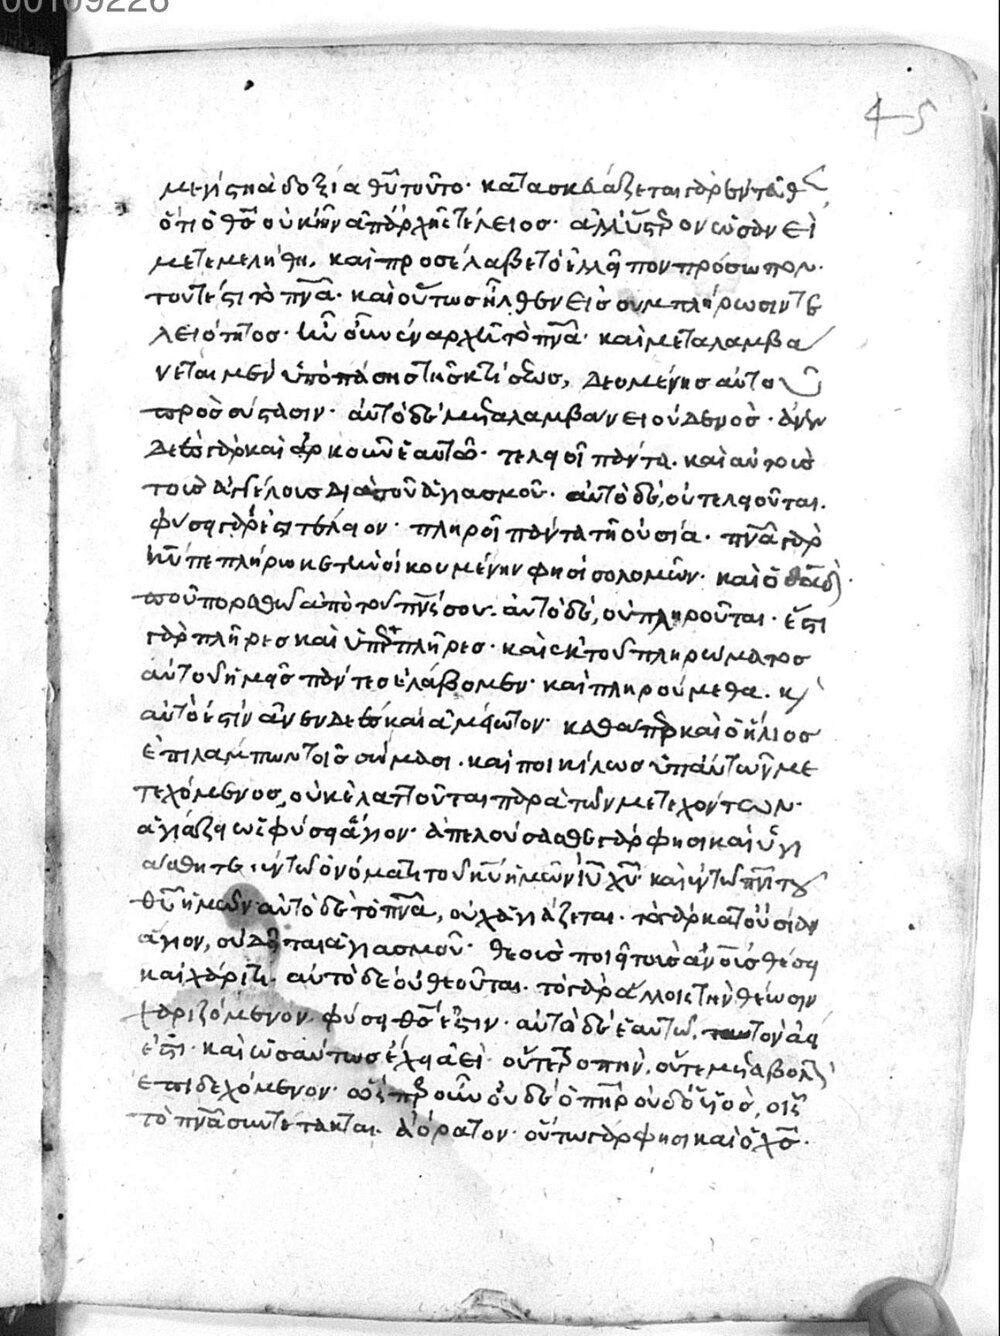 00109226
45
μεγίστη ἀδοξία θῦ τοῦτο· κατασκευάζεται γὰρ ἐντεῦθ
ὅτι ὁ θσ οὐκ ἦν ἀπαρχῆς τέλειος· ἀλλ' ὕστερον ὡσὰν εἰ
μετεμελήθη, καὶ προσέλαβε τὸ ἐλλεῖπον πρόσωπον·
τουτέστι τὸ πνα· καὶ οὕτως ἦλθεν εἰς συμπλήρωσιν τε
λειότητος· ἦν οὖν ἐν ἀρχῆ τὸ πνα· καὶ μεταλαμβά
νεται μὲν ὑπὸ πάσης τῆς κτίσεως, δεομένης αὐτοῦ
πρὸς σύστασιν· αὐτὸ δὲ μεταλαμβάνει οὐδενὸς· ἀνεν
δεὲς γὰρ καὶ ἀρκοῦν ἑαυτῶ· τελειοῖ πάντα· καὶ αὐτοὺς
τοὺς ἀγγέλους διὰ τοῦ ἁγιασμοῦ· αὐτὸ δὲ, οὐ τελειοῦται·
φύσει γάρ ἐστι τέλειον· πληροῖ πάντα τῆ οὐσία· πνα γὰρ
κυ πεπλήρωκε τὴν οἰκουμένην φησὶ σολομῶν· καὶ ὁ θεῖος δαδ·
ποῦ πορευθῶ ἀπὸ τοῦ πνς σου· αὐτὸ δὲ, οὐ πληροῦται· ἔστι
γὰρ πλῆρες καὶ ὑπερπλῆρες· καὶ ἐκ τοῦ πληρώματος
αὐτοῦ ἡμεῖς πάντες ἐλάβομεν· καὶ πληρούμεθα· κ
αὐτό ἐστιν ἀνενδεὲς καὶ ἀμείωτον· καθάπερ καὶ ὁ ἥλιος
ἐπιλάμπων τοῖς σώμασι· καὶ ποικίλως ὑπ' αὐτῶν με
τεχόμενος, οὐκ ἐλαττοῦται παρὰ τῶν μετεχόντων·
ἁγιάζει ὡς φύσει ἅγιον· ἀπελούσασθε γάρ φησι καὶ ἡγι
άσθητε ἐν τῶ ὀνόματι τοῦ κυ ἡμῶν ιυ χυ καὶ ἐν τῶ πνι τοῦ
θυ ἡμῶν· αὐτὸ δὲ τὸ πνα, οὐχ ἁγιάζεται· τὸ γὰρ κατ' οὐσίαν
ἅγιον, οὐ δεῖται ἁγιασμοῦ· θεοὺς ποιεῖ τοὺς ανους θέσει
καὶ χάριτι· αὐτὸ δὲ οὐ θεοῦται· τὸ γὰρ ἄλλοις τὴν θέωσιν
χαριζόμενον, φύσει θσ ἐστιν· αὐτὸ δὲ ἑαυτῶ, ταυτὸν ἀεί
ἐστι· καὶ ὡσαύτως ἔχει ἀεὶ· οὔτε τροπὴν, οὔτε μεταβολὴν
ἐπιδεχόμενον· ὥσπερ οὖν οὐδὲ ὁ πηρ οὐδὲ ὁ υἱὸς, οἷς
τὸ πνα συντέτακται· ἀόρατον· οὕτω γάρ φησι καὶ ὁ χσ·